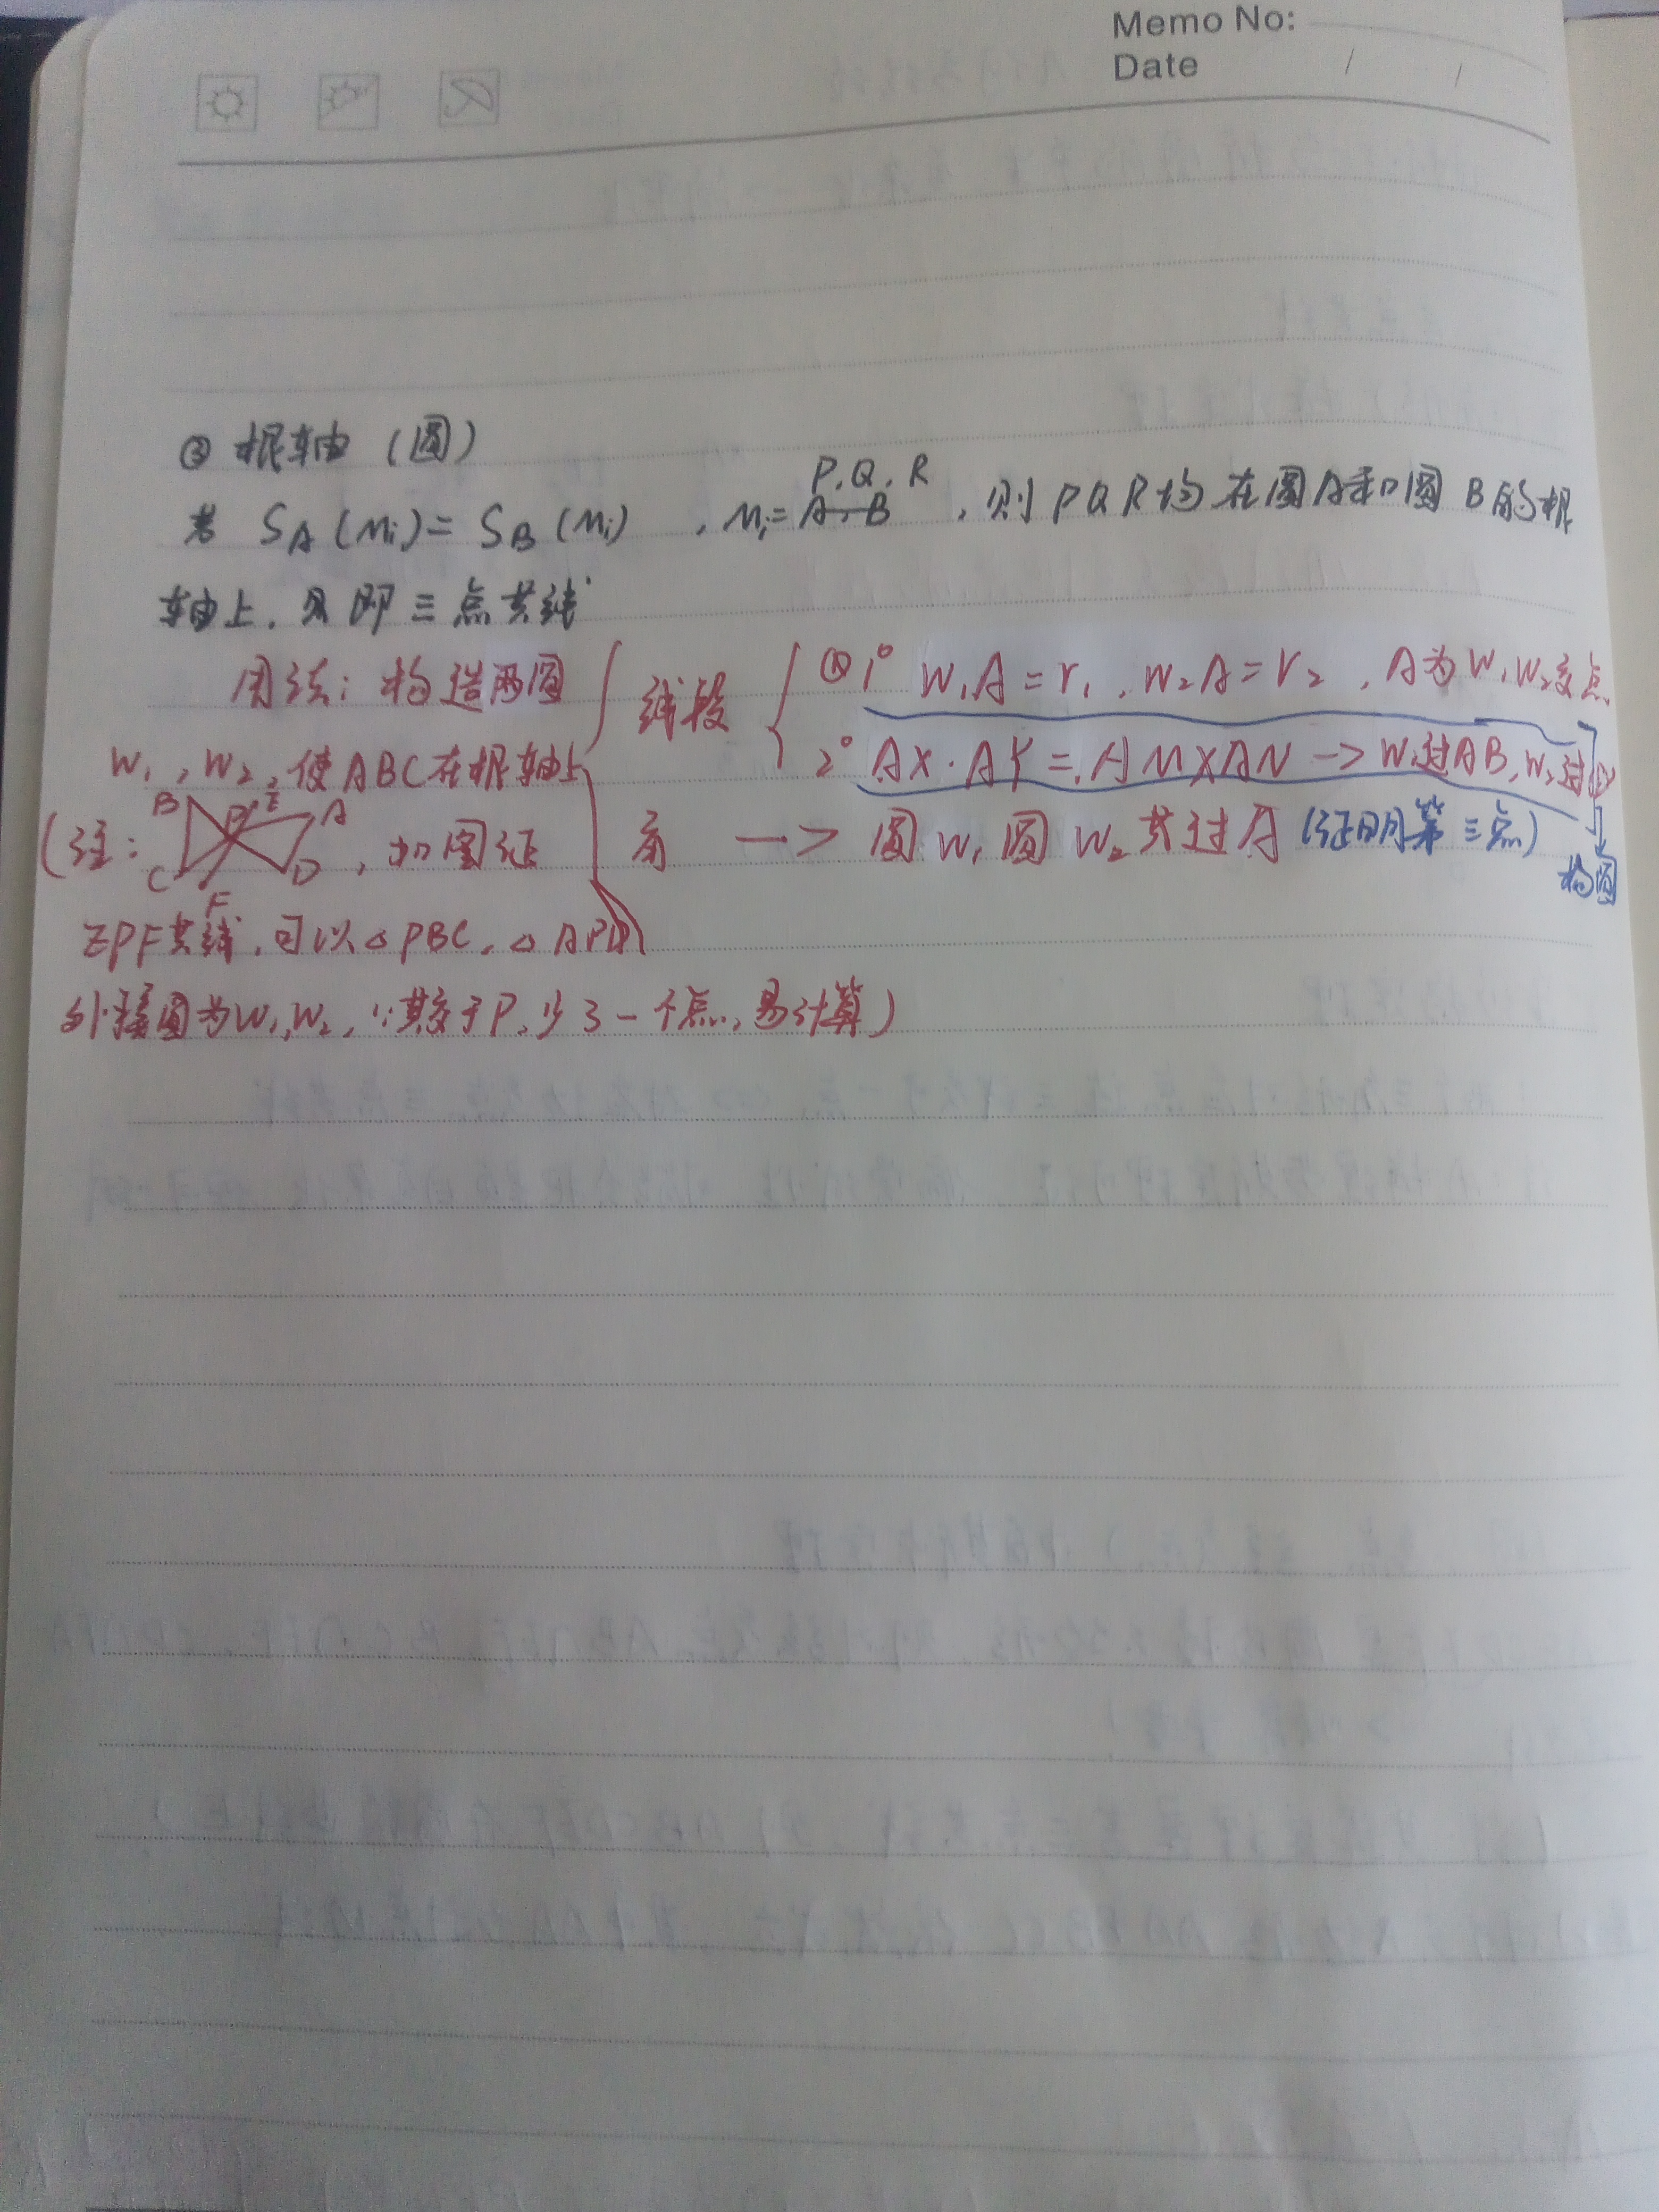 Memo No:
Date / /
③ 根轴 (圆)
P.Q.R
若 SA(Mi)=SB(Mi) , Mi= A、B , 则PQR均在圆A和圆B的根
轴上. 即三点共线
用法: 构造两圆
W₁, W₂, 使ABC在根轴上
线段
1° W₁A=r₁, W₂A=r₂, A为W₁W₂交点
2° AX·AY=AM×AN -> W₁过AB, W₂过
角 —> 圆W₁圆W₂共过A (证明第三点)
构圆
(注: B P E A C F D , 如图证
EPF共线, 可以△PBC, △APD
外接圆为W₁,W₂, ∵其交于P, 少了一个点, 易计算)